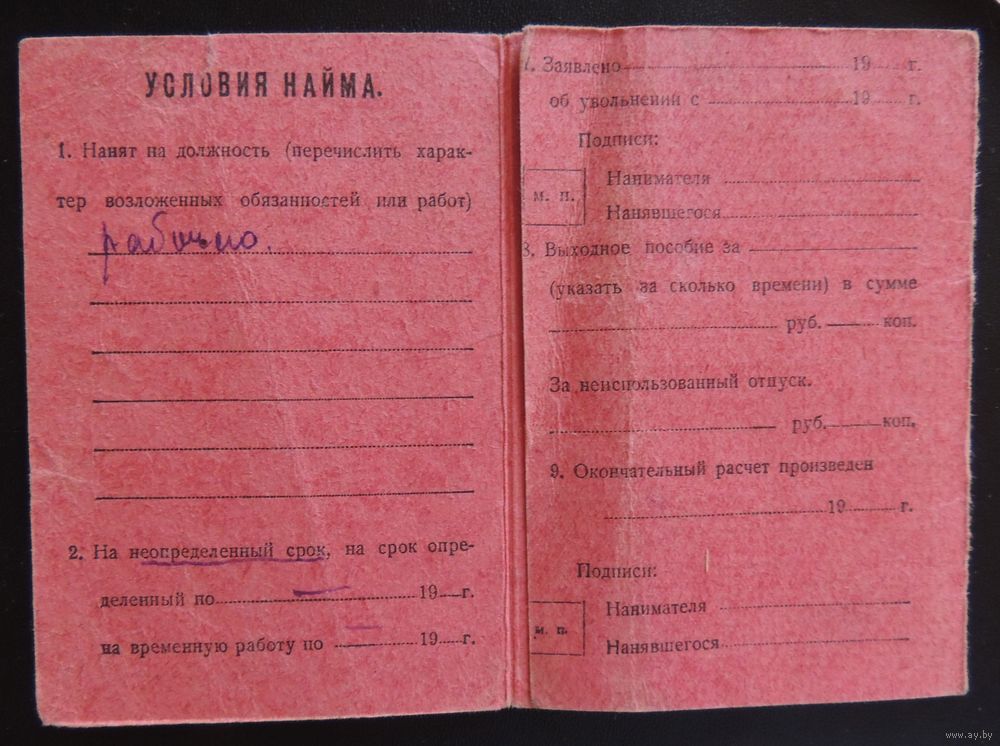 УСЛОВИЯ НАЙМА.
1. Нанят на должность (перечислить харак-
тер возложенных обязанностей или работ)
рабочью.
2. На неопределенный срок, на срок опре-
деленный по 19 г.
на временную работу по 19 г.
7. Заявлено 19 г.
об увольнении с 19 г.
Подписи:
м. п.
Нанимателя
Нанявшегося
8. Выходное пособие за
(указать за сколько времени) в сумме
руб. коп.
За неиспользованный отпуск.
руб. коп.
9. Окончательный расчет произведен
19 г.
Подписи:
м. п.
Нанимателя
Нанявшегося
www.ay.by